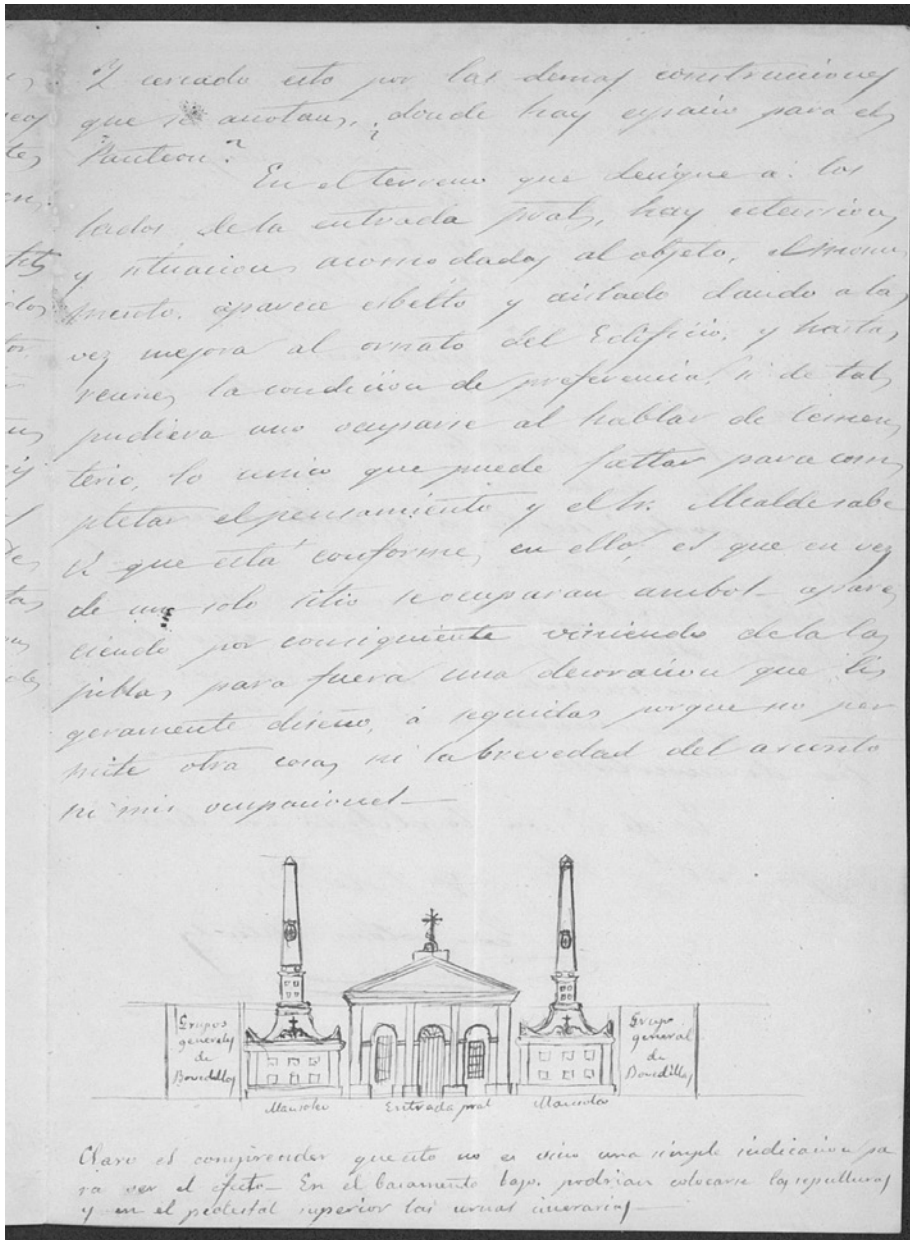 Y cercado esto por las demas construcciones
que se anotan, ¿donde hay espacio para el
Panteon?
En el terreno que designe á los
lados de la entrada pral, hay estension
y situacion acomodada al objeto, el monu
mento, aparece esbelto y aislado dando a la
vez mejora al ornato del Edificio, y hasta
reune la condicion de preferencia, si de tal
pudiera uno ocuparse al hablar de cemen
terio, lo unico que puede faltar para com
pletar el pensamiento y el Sr. Alcalde sabe
que está conforme en ello, es que en vez
de un solo sitio se ocuparan ambos - apare
ciendo por consiguiente viniendo de la Ca
pilla para fuera una decoracion que li
geramente diseño, á seguida porque no per
mite otra cosa, ni la brevedad del asunto
ni mis ocupaciones -
Grupos
generales
de
Bovedillas
Grupo
general
de
Bovedillas
Mausoleo Entrada pral Mausoleo
Claro es comprender que esto no es sino una simple indicacion pa
ra ver el efecto - En el basamento bajo, podrian colocarse las sepulturas
y en el pedestal superior las urnas cinerarias -